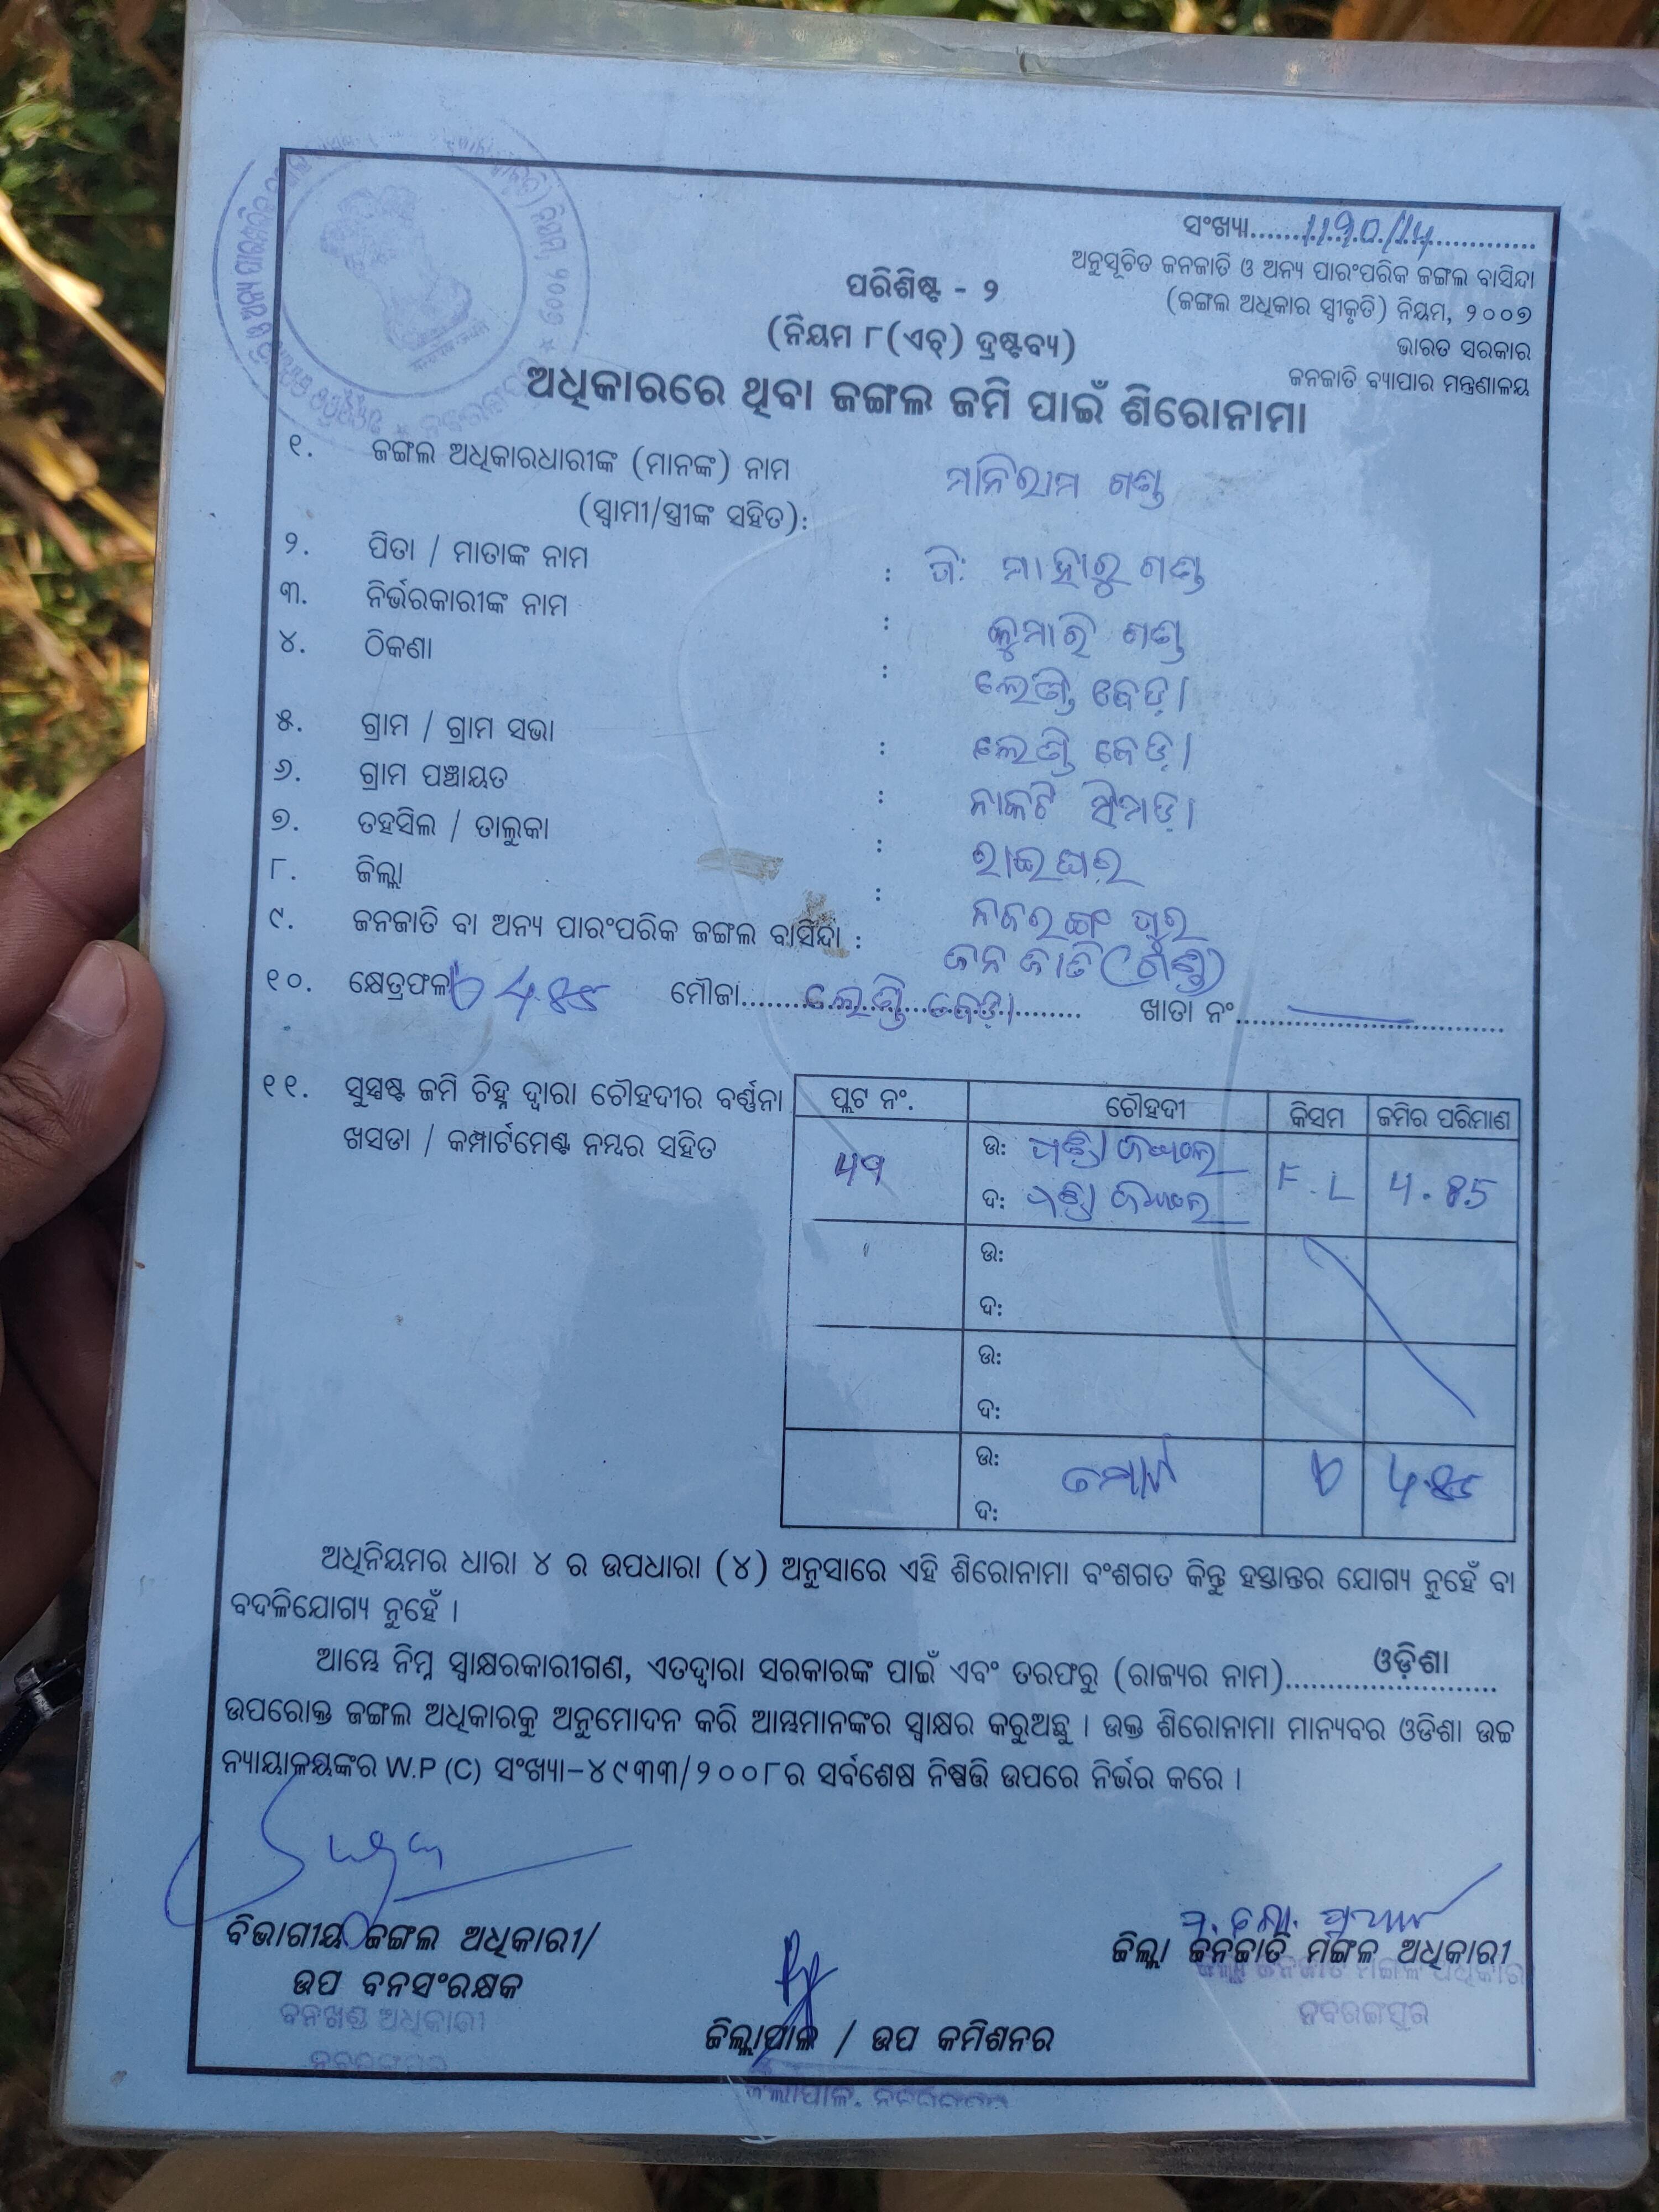 ସଂଖ୍ୟା..........1190/14..........
ଅନୁସୂଚିତ ଜନଜାତି ଓ ଅନ୍ୟ ପାରଂପରିକ ଜଙ୍ଗଲ ବାସିନ୍ଦା
(ଜଙ୍ଗଲ ଅଧିକାର ସ୍ୱୀକୃତି) ନିୟମ, ୨୦୦୭
ଭାରତ ସରକାର
ଜନଜାତି ବ୍ୟାପାର ମନ୍ତ୍ରଣାଳୟ
ପରିଶିଷ୍ଟ - ୨
(ନିୟମ ୮(ଏଚ୍) ଦ୍ରଷ୍ଟବ୍ୟ)
ଅଧିକାରରେ ଥିବା ଜଙ୍ଗଲ ଜମି ପାଇଁ ଶିରୋନାମା
୧. ଜଙ୍ଗଲ ଅଧିକାରଧାରୀଙ୍କ (ମାନଙ୍କ) ନାମ ମନିରାମ ଗଣ୍ଡ
(ସ୍ୱାମୀ/ସ୍ତ୍ରୀଙ୍କ ସହିତ):
୨. ପିତା / ମାତାଙ୍କ ନାମ : ମାହାରୁ ଗଣ୍ଡ
୩. ନିର୍ଭରକାରୀଙ୍କ ନାମ : କୁମାରି ଗଣ୍ଡ
୪. ଠିକଣା : ଲେଣ୍ଡି ବେଡ଼ା
୫. ଗ୍ରାମ / ଗ୍ରାମ ସଭା : ଲେଣ୍ଡି ବେଡ଼ା
୬. ଗ୍ରାମ ପଞ୍ଚାୟତ : ନାକଟି ସିମଡ଼ା
୭. ତହସିଲ / ତାଲୁକା : ରାଇଘର
୮. ଜିଲ୍ଲା : ନବରଙ୍ଗପୁର
୯. ଜନଜାତି ବା ଅନ୍ୟ ପାରଂପରିକ ଜଙ୍ଗଲ ବାସିନ୍ଦା : ଜନଜାତି (ଗଣ୍ଡ)
୧୦. କ୍ଷେତ୍ରଫଳ 4.85 ମୌଜା..........ଲେଣ୍ଡି ବେଡ଼ା.......... ଖାତା ନଂ..............................
୧୧. ସୁସ୍ପଷ୍ଟ ଜମି ଚିହ୍ନ ଦ୍ୱାରା ଚୌହଦୀର ବର୍ଣ୍ଣନା
ଖସଡା / କମ୍ପାର୍ଟମେଣ୍ଟ ନମ୍ବର ସହିତ
ପ୍ଲଟ ନଂ. ଚୌହଦୀ କିସମ ଜମିର ପରିମାଣ
ଉ:
49 F.L 4.85
ଦ:
ଉ:
ଦ:
ଉ:
ଦ:
ଉ:
4.85
ଦ:
ଅଧିନିୟମର ଧାରା ୪ ର ଉପଧାରା (୪) ଅନୁସାରେ ଏହି ଶିରୋନାମା ବଂଶଗତ କିନ୍ତୁ ହସ୍ତାନ୍ତର ଯୋଗ୍ୟ ନୁହେଁ ବା
ବଦଳିଯୋଗ୍ୟ ନୁହେଁ ।
ଆମ୍ଭେ ନିମ୍ନ ସ୍ୱାକ୍ଷରକାରୀଗଣ, ଏତଦ୍ୱାରା ସରକାରଙ୍କ ପାଇଁ ଏବଂ ତରଫରୁ (ରାଜ୍ୟର ନାମ)..........ଓଡ଼ିଶା..........
ଉପରୋକ୍ତ ଜଙ୍ଗଲ ଅଧିକାରକୁ ଅନୁମୋଦନ କରି ଆମ୍ଭମାନଙ୍କର ସ୍ୱାକ୍ଷର କରୁଅଛୁ । ଉକ୍ତ ଶିରୋନାମା ମାନ୍ୟବର ଓଡିଶା ଉଚ୍ଚ
ନ୍ୟାୟାଳୟଙ୍କର W.P (C) ସଂଖ୍ୟା-୪୯୩୩/୨୦୦୮ର ସର୍ବଶେଷ ନିଷ୍ପତ୍ତି ଉପରେ ନିର୍ଭର କରେ ।
ବିଭାଗୀୟ ଜଙ୍ଗଲ ଅଧିକାରୀ/
ଉପ ବନସଂରକ୍ଷକ
ବନଖଣ୍ଡ ଅଧିକାରୀ
ନବରଙ୍ଗପୁର
ଜିଲ୍ଲାପାଳ / ଉପ କମିଶନର
ଜିଲ୍ଲାପାଳ, ନବରଙ୍ଗପୁର
ଜିଲ୍ଲା ଜନଜାତି ମଙ୍ଗଳ ଅଧିକାରୀ
ଜିଲ୍ଲା ଜନଜାତି ମଙ୍ଗଳ ଅଧିକାରୀ
ନବରଙ୍ଗପୁର